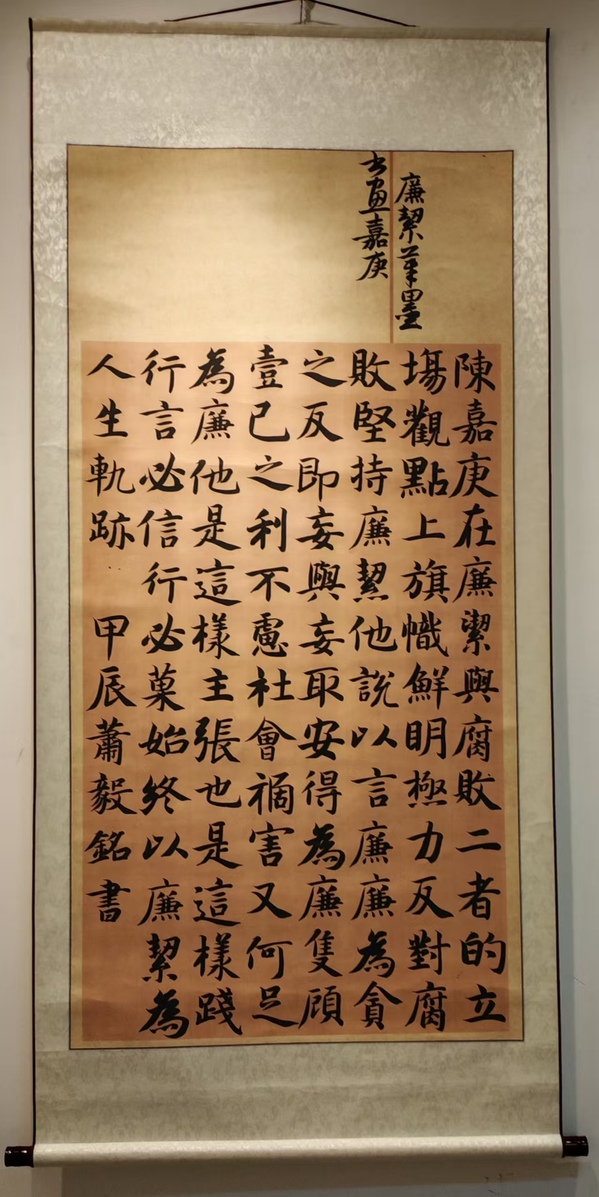 廉潔筆墨
书畫嘉庚
陳嘉庚在廉潔與腐敗二者的立
場觀點上旗幟鮮明極力反對腐
敗堅持廉潔他說以言廉廉為貪
之反即妄與妄取安得為廉隻顧
壹已之利不慮社會禍害又何足
為廉他是這樣主張也是這樣踐
行言必信行必菓始終以廉潔為
人生軌跡 甲辰蕭毅銘書